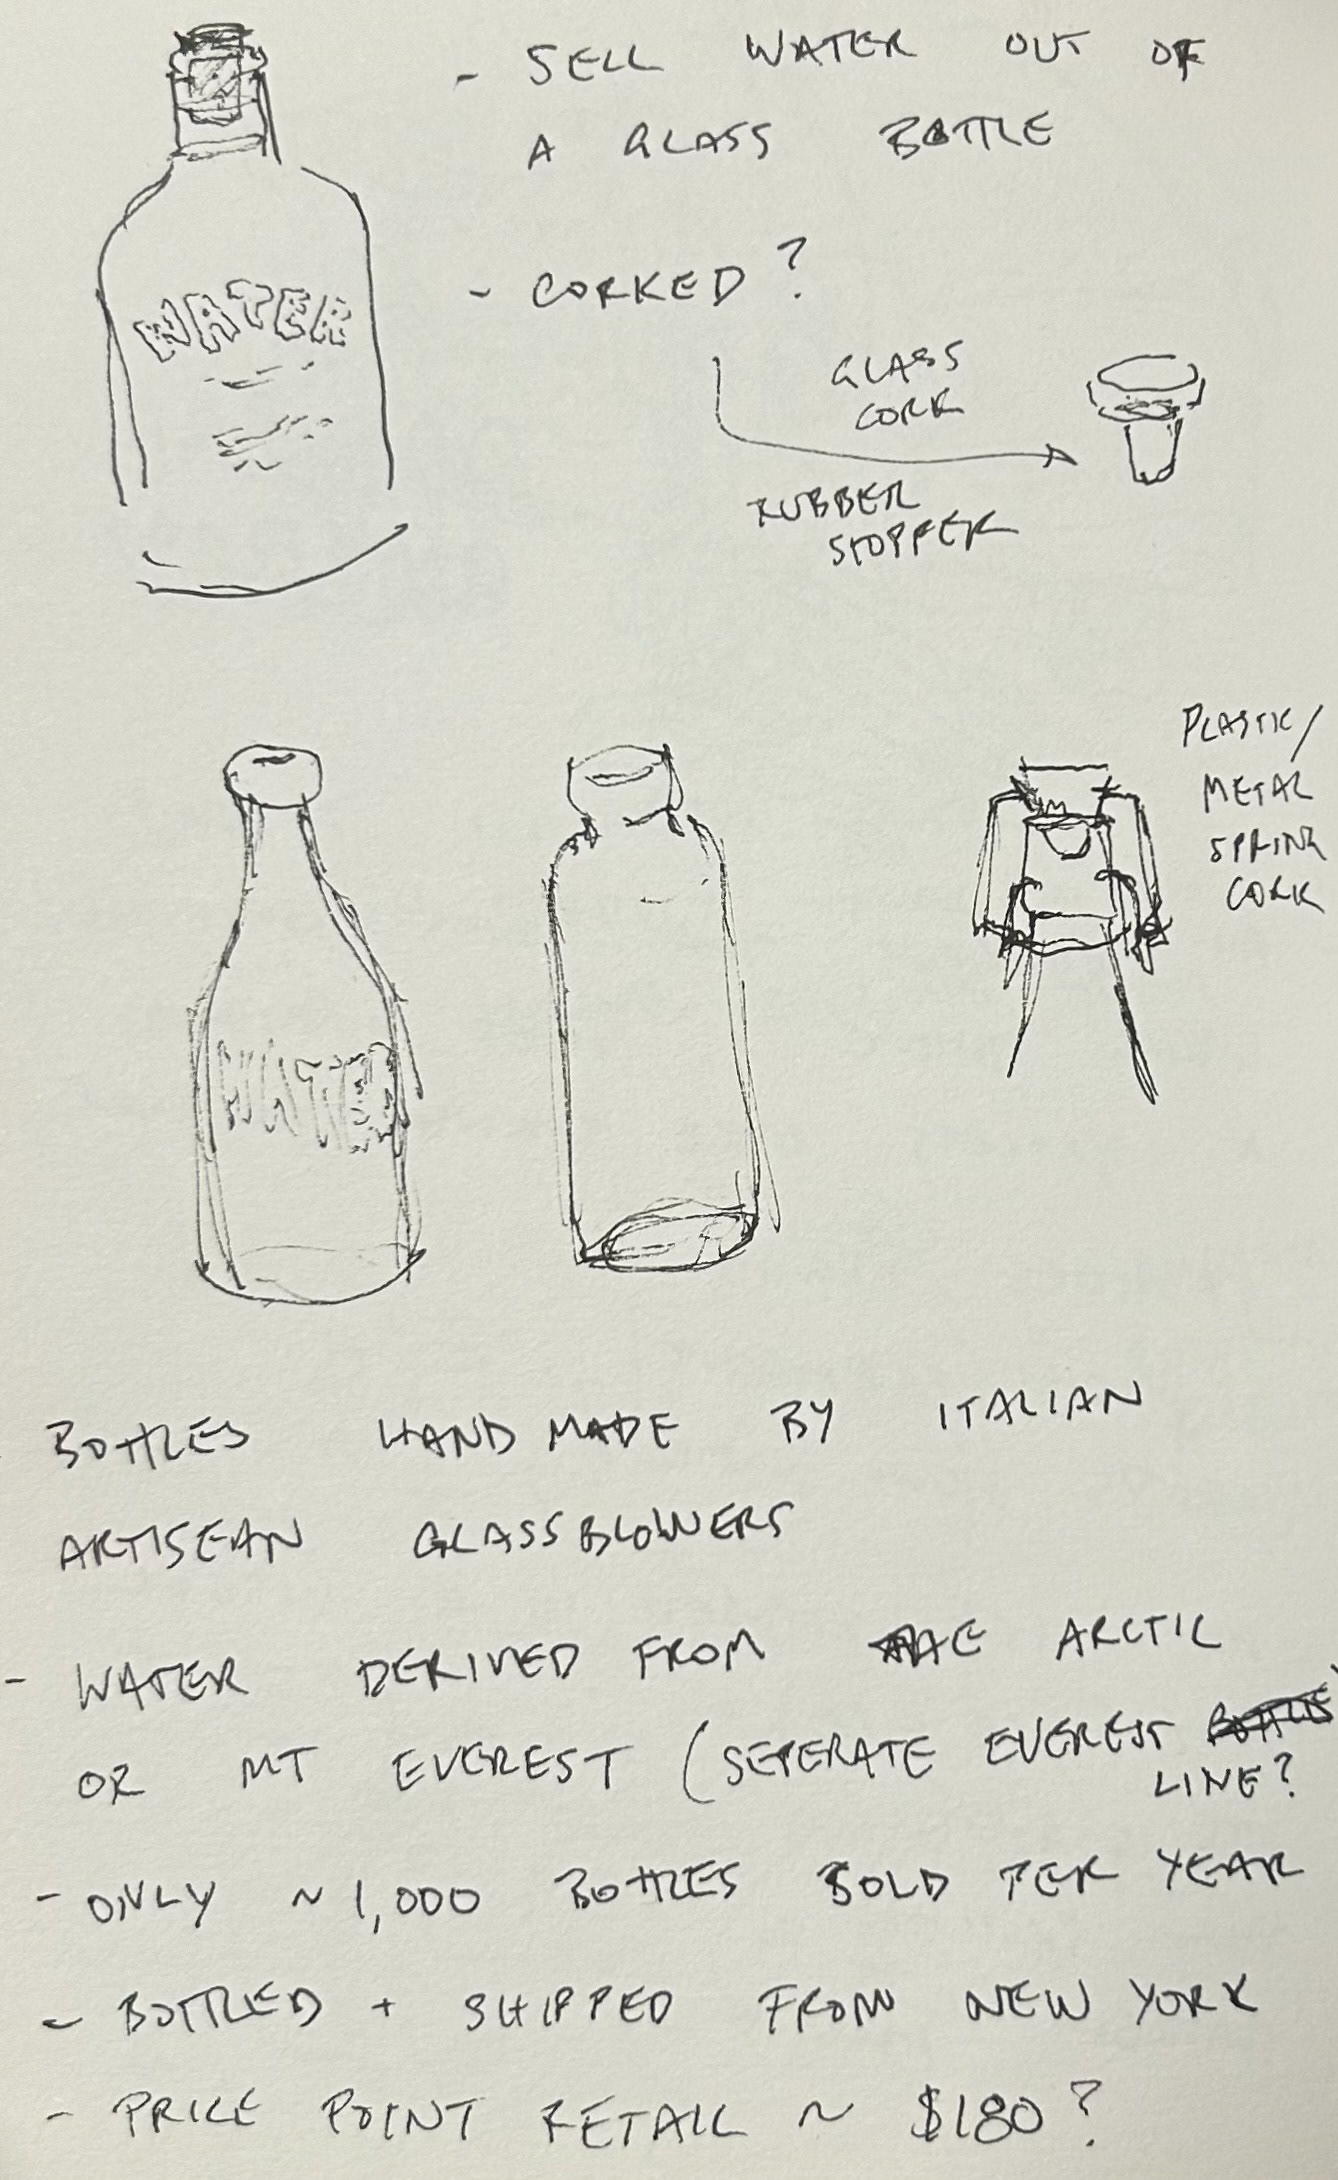 - SELL WATER OUT OF
A GLASS BOTTLE
WATER
- CORKED?
GLASS
CORK
RUBBER
STOPPER
PLASTIC/
METAL
SPRING
CORK
WATER
BOTTLES HANDMADE BY ITALIAN
ARTISEAN GLASSBLOWERS
- WATER DERIVED FROM THE ARCTIC
OR MT EVEREST (SEPERATE EVEREST
LINE?
- ONLY ~ 1,000 BOTTLES SOLD PER YEAR
- BOTTLED + SHIPPED FROM NEW YORK
- PRICE POINT RETAIL ~ $180?